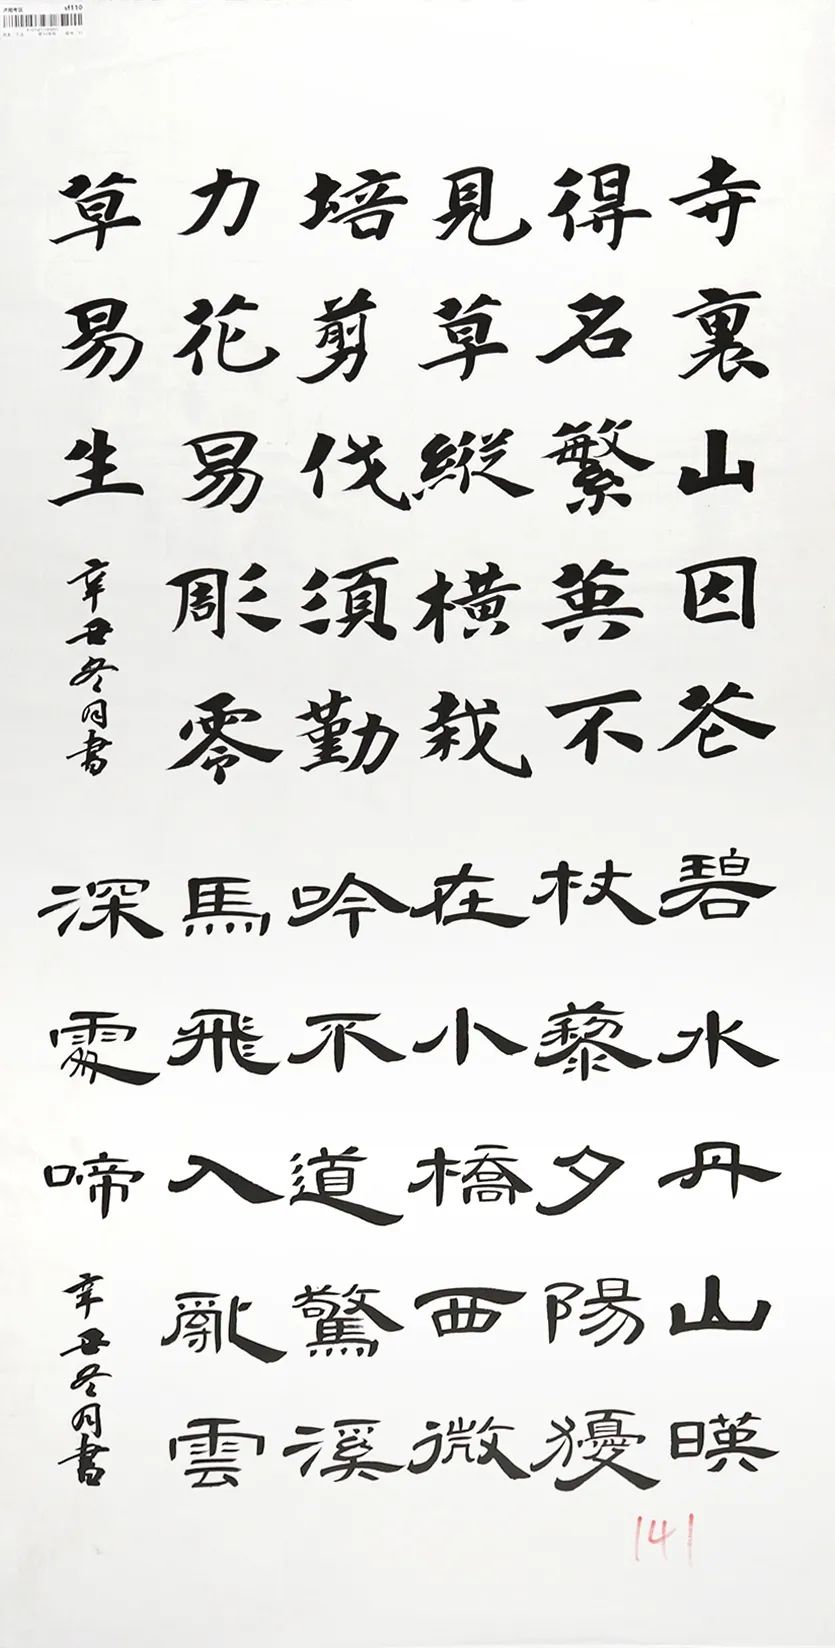 sf110
寺裏山因花
得名繁英不
見草縱橫栽
培剪伐須勤
力花易彫零
草易生
辛丑冬月書
碧水丹山暎
杖藜夕陽獶
在小橋西微
吟不道驚溪
馬飛入亂雲
深處啼
辛丑冬月書
141